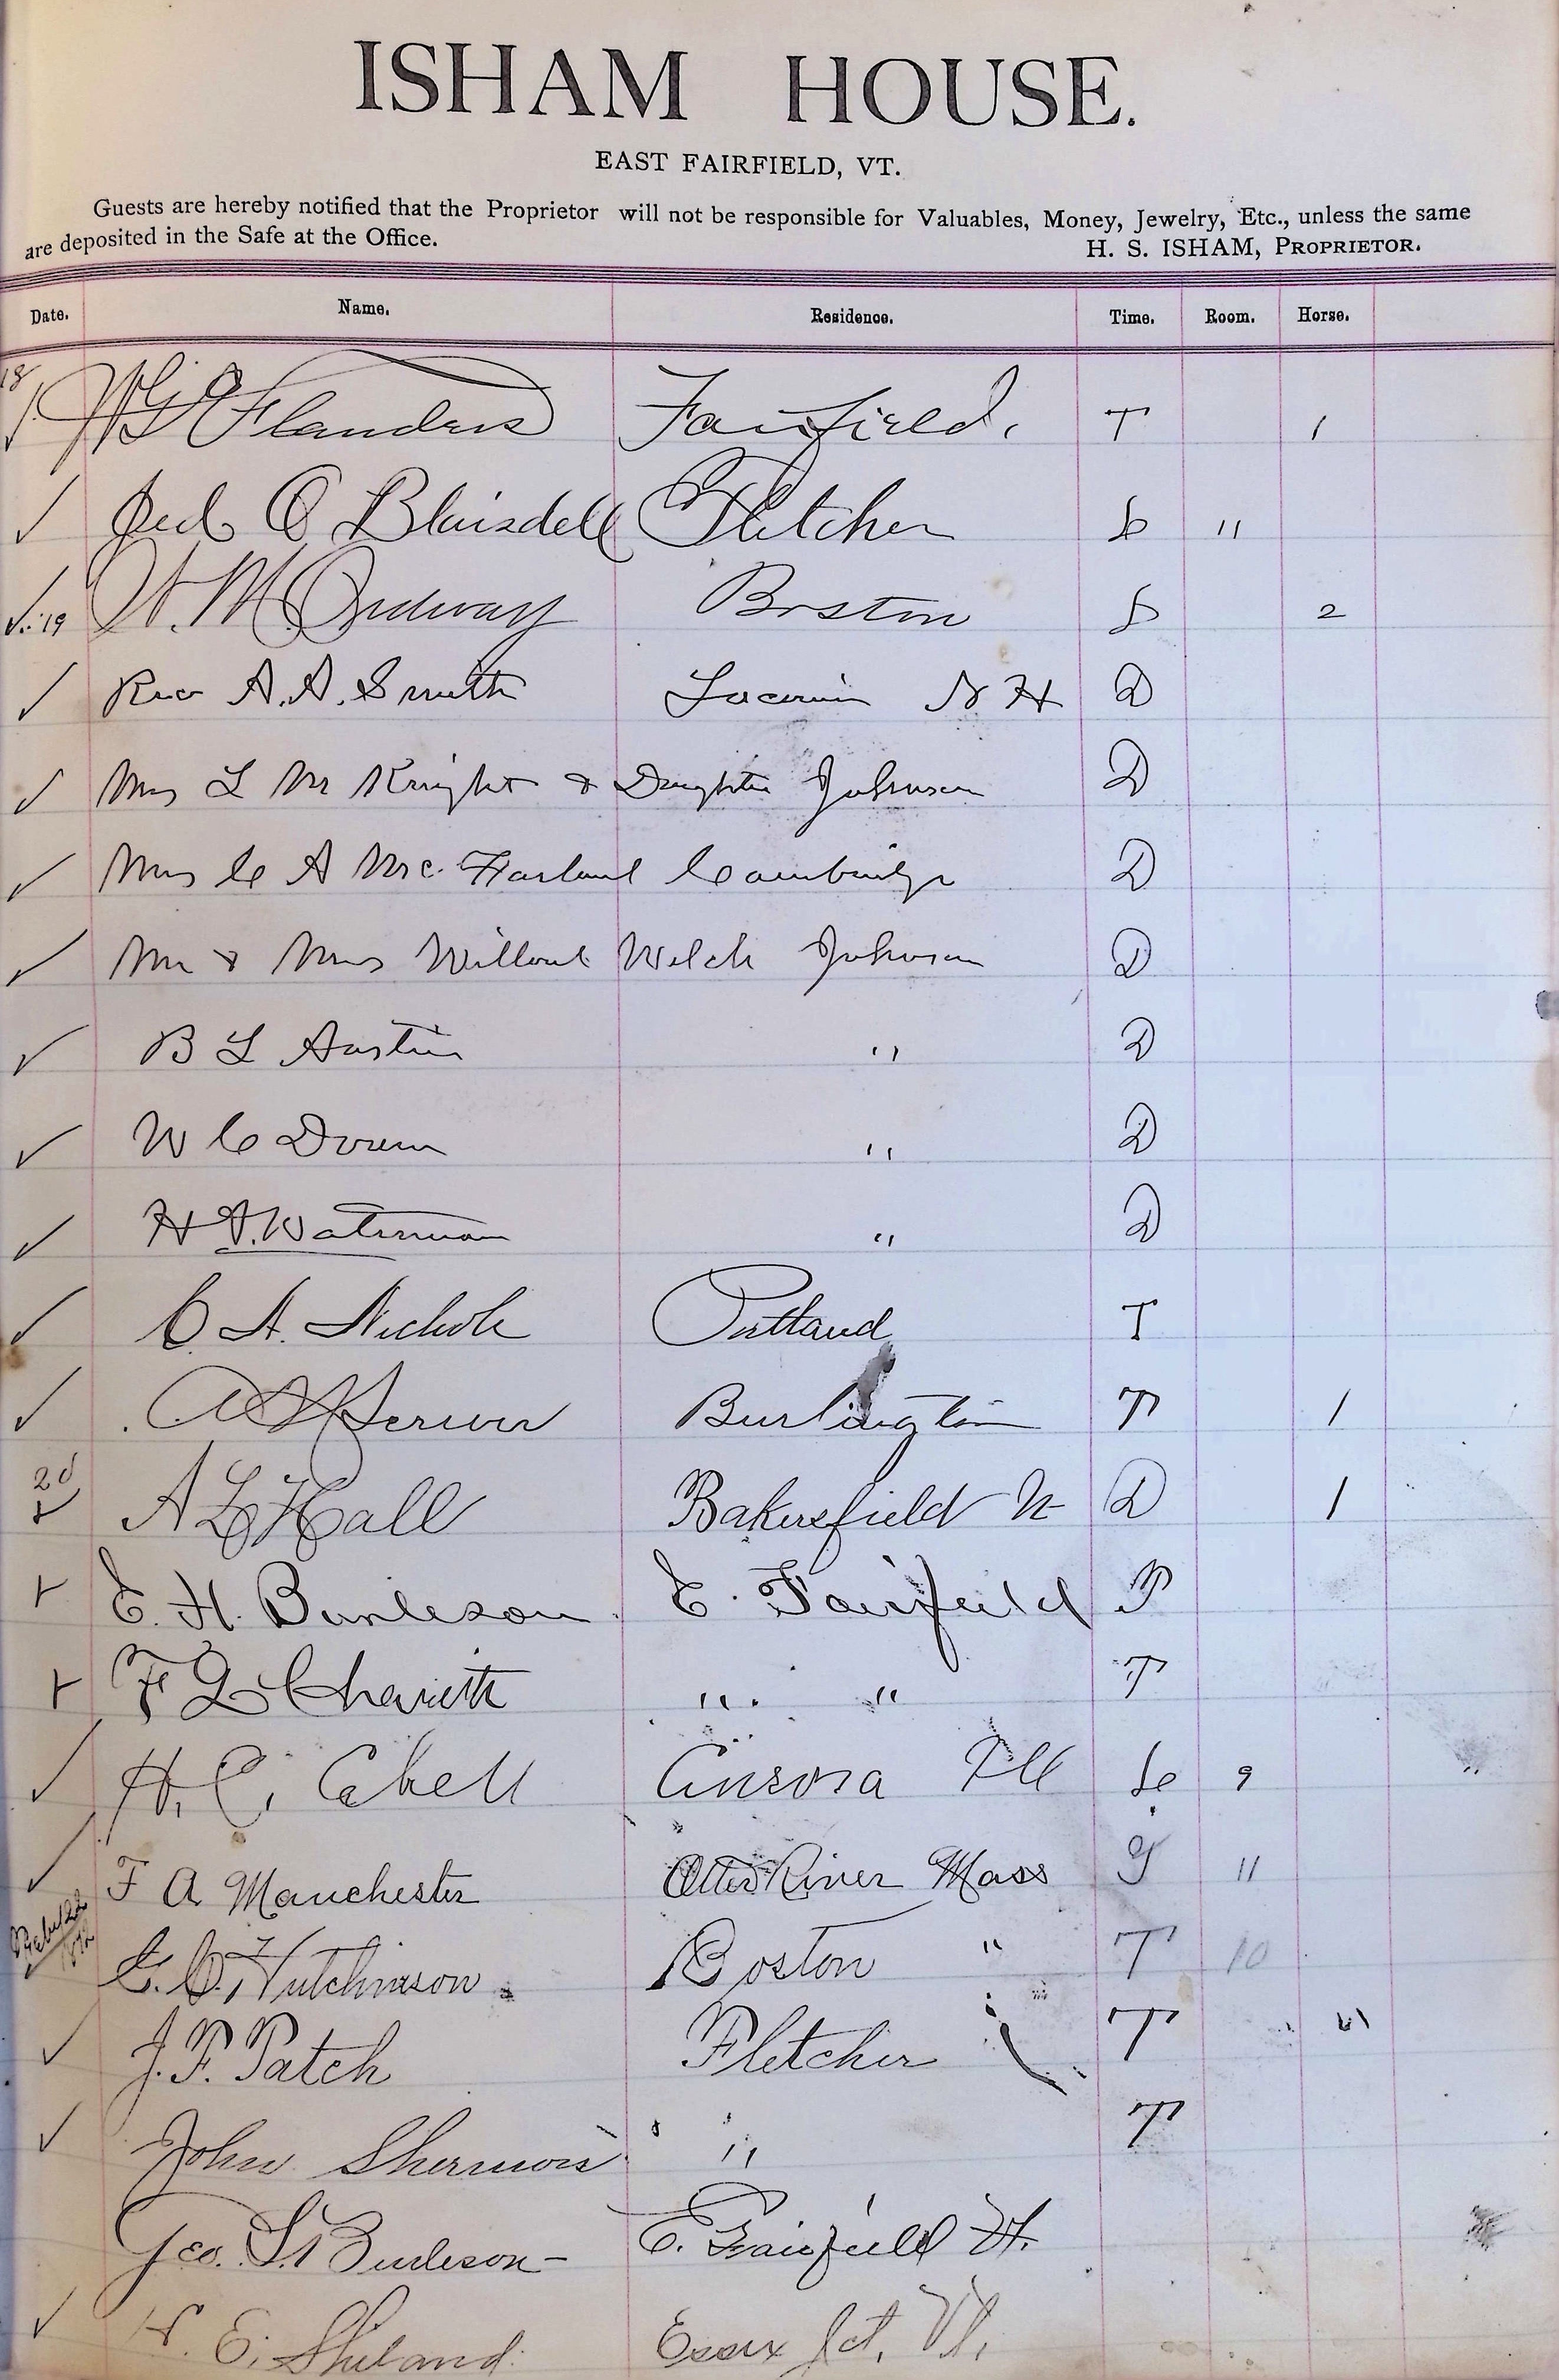 ISHAM HOUSE.
EAST FAIRFIELD, VT.
Guests are hereby notified that the Proprietor will not be responsible for Valuables, Money, Jewelry, Etc., unless the same
are deposited in the Safe at the Office.
H. S. ISHAM, PROPRIETOR.
Date. Name. Residence. Time. Room. Horse.
18 Flanders Fairfield, T 1
O Blaisdell Fletcher 11
19 M Ordway Boston 2
Rev A. A. Smith Laconia N H D
Mrs L M Knight & Daughter Johnson D
Mrs C A Mc. Farland Cambridge D
Mr & Mrs Willard Welch Johnson D
B L Austin " D
W C Doran " D
H A. Waterman " D
C. A. Nichols T
Burlington T 1
20 A L Hall Bakersfield Vt D 1
E. H. Burleson E. Fairfield T
F L " " T
H. C. Aurora Ill 9
F A Manchester Otter River Mass T 11
Hutchinson Boston " T 10
J. F. Patch Fletcher T
John " T
Geo. S. Burleson E. Fairfield Vt.
E. Essex Jct. Vt.